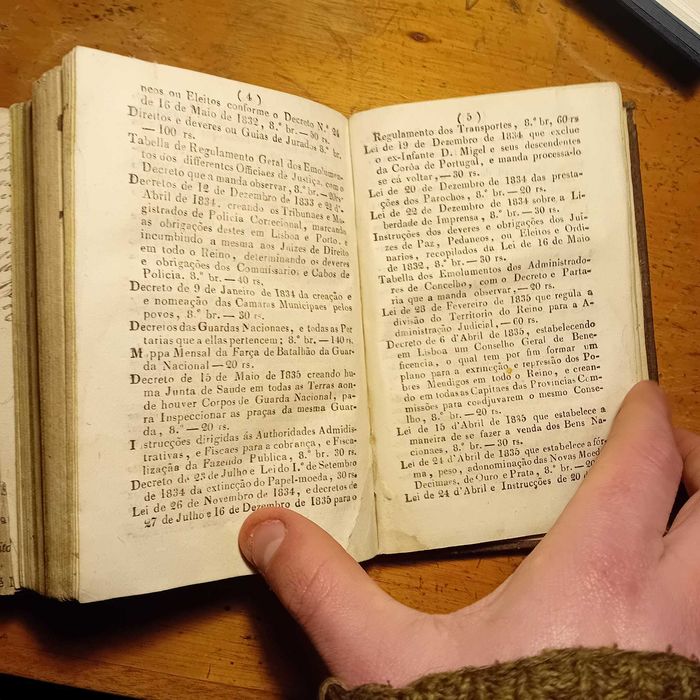 ( 4 )
neos ou Eleitos conforme o Decreto N.º 24
de 16 de Maio de 1832, 8.º br. — 50 rs.
Direitos e deveres ou Guias de Jurados 8.º br.
— 100 rs.
Tabella de Regulamento Geral dos Emolumen-
tos dos differentes Officiaes de Justiça, com o
Decreto que a manda observar, 8.º br. — 20 rs.
Decretos de 12 de Dezembro de 1833 e 2 d'
Abril de 1834. creando os Tribunaes e Ma-
gistrados de Policia Correcional, marcando
as obrigações destes em Lisboa e Porto, e
incumbindo a mesma aos Juizes de Direito
em todo o Reino, determinando os deveres
e obrigações dos Commissarios e Cabos de
Policia. 8.º br. — 40 rs,
Decreto de 9 de Janeiro de 1834 da creação e
e nomeação das Camaras Municipaes pelos
povos, 8.º br. — 30 rs.
Decretos das Guardas Nacionaes, e todas as Por
tarias que a ellas pertencem; 8.º br. — 140 rs.
Mappa Mensal da Farça de Batalhão da Guar-
da Nacional — 20 rs.
Decreto de 15 de Maio de 1835 creando hu
ma Junta de Saude em todas as Terras aon-
de houver Corpos de Guarda Nacional, pa-
ra Inspeccionar as praças da mesma Guar-
da, 8.º — 20 rs.
Istrucções dirigidas ás Authoridades Admidis-
trativas, e Fiscaes para a cobrança, e Fisca-
lização da Fazenda Publica, 8.º br. 30 rs.
Decreto de 23 de Julho e Lei do 1.º de Setembro
de 1834 da extincção do Papel-moeda, 30 rs,
Lei de 26 de Novembro de 1834, e decretos de
27 de Julho e 16 de Dezembro de 1835 para o
( 5 )
Regulamento dos Transportes, 8.º br, 60 rs
Lei de 19 de Dezembro de 1834 que exclue
o ex-Infante D. Migel e seus descendentes
da Corôa de Portugal, e manda processa-lo
se cá voltar, — 30 rs.
Lei de 20 de Dezembro de 1834 das presta-
ções dos Parochos, 8.º br. — 20 rs.
Lei de 22 de Dezembro de 1834 sobre a Li-
berdade de Imprensa, 8.º br. — 30 rs.
Instrucções dos deveres e obrigações dos Jui-
zes de Paz, Pedaneos, ou Eleitos e Ordi-
narios, recopilados da Lei de 16 de Maio
de 1832, 8.º br. — 30 rs.
Tabella dos Emolumentos dos Administrado-
res de Concelho, com o Decreto e Parta-
ria que a manda observar, — 20 rs.
Lei de 28 de Fevereiro de 1835 que regula a
divisão do Territorio do Reino para a A-
dministração Judicial, — 60 rs.
Decreto de 6 d'Abril de 1835, estabelecendo
em Lisboa um Conselho Geral de Bene-
ficencia, o qual tem por fim formar um
plano para a extincção e repressão dos Po-
bres Mendigos em todo o Reino, e crean-
do em todas as Capitaes das Provincias Com-
missões para condjuvarem o mesmo Conse-
lho, 8.º br. — 20 rs.
Lei de 15 d'Abril de 1835 que estabelece a
maneira de se fazer a venda dos Bens Na-
cionaes, 8.º br. — 30 rs.
Lei de 24 d'Abril de 1835 que estabelece a fór-
ma, peso, adonominação das Novas Moed
Decimaes, de Ouro e Prata, 8.º br. — 20
Lei de 24 d'Abril e Instrucções de 20